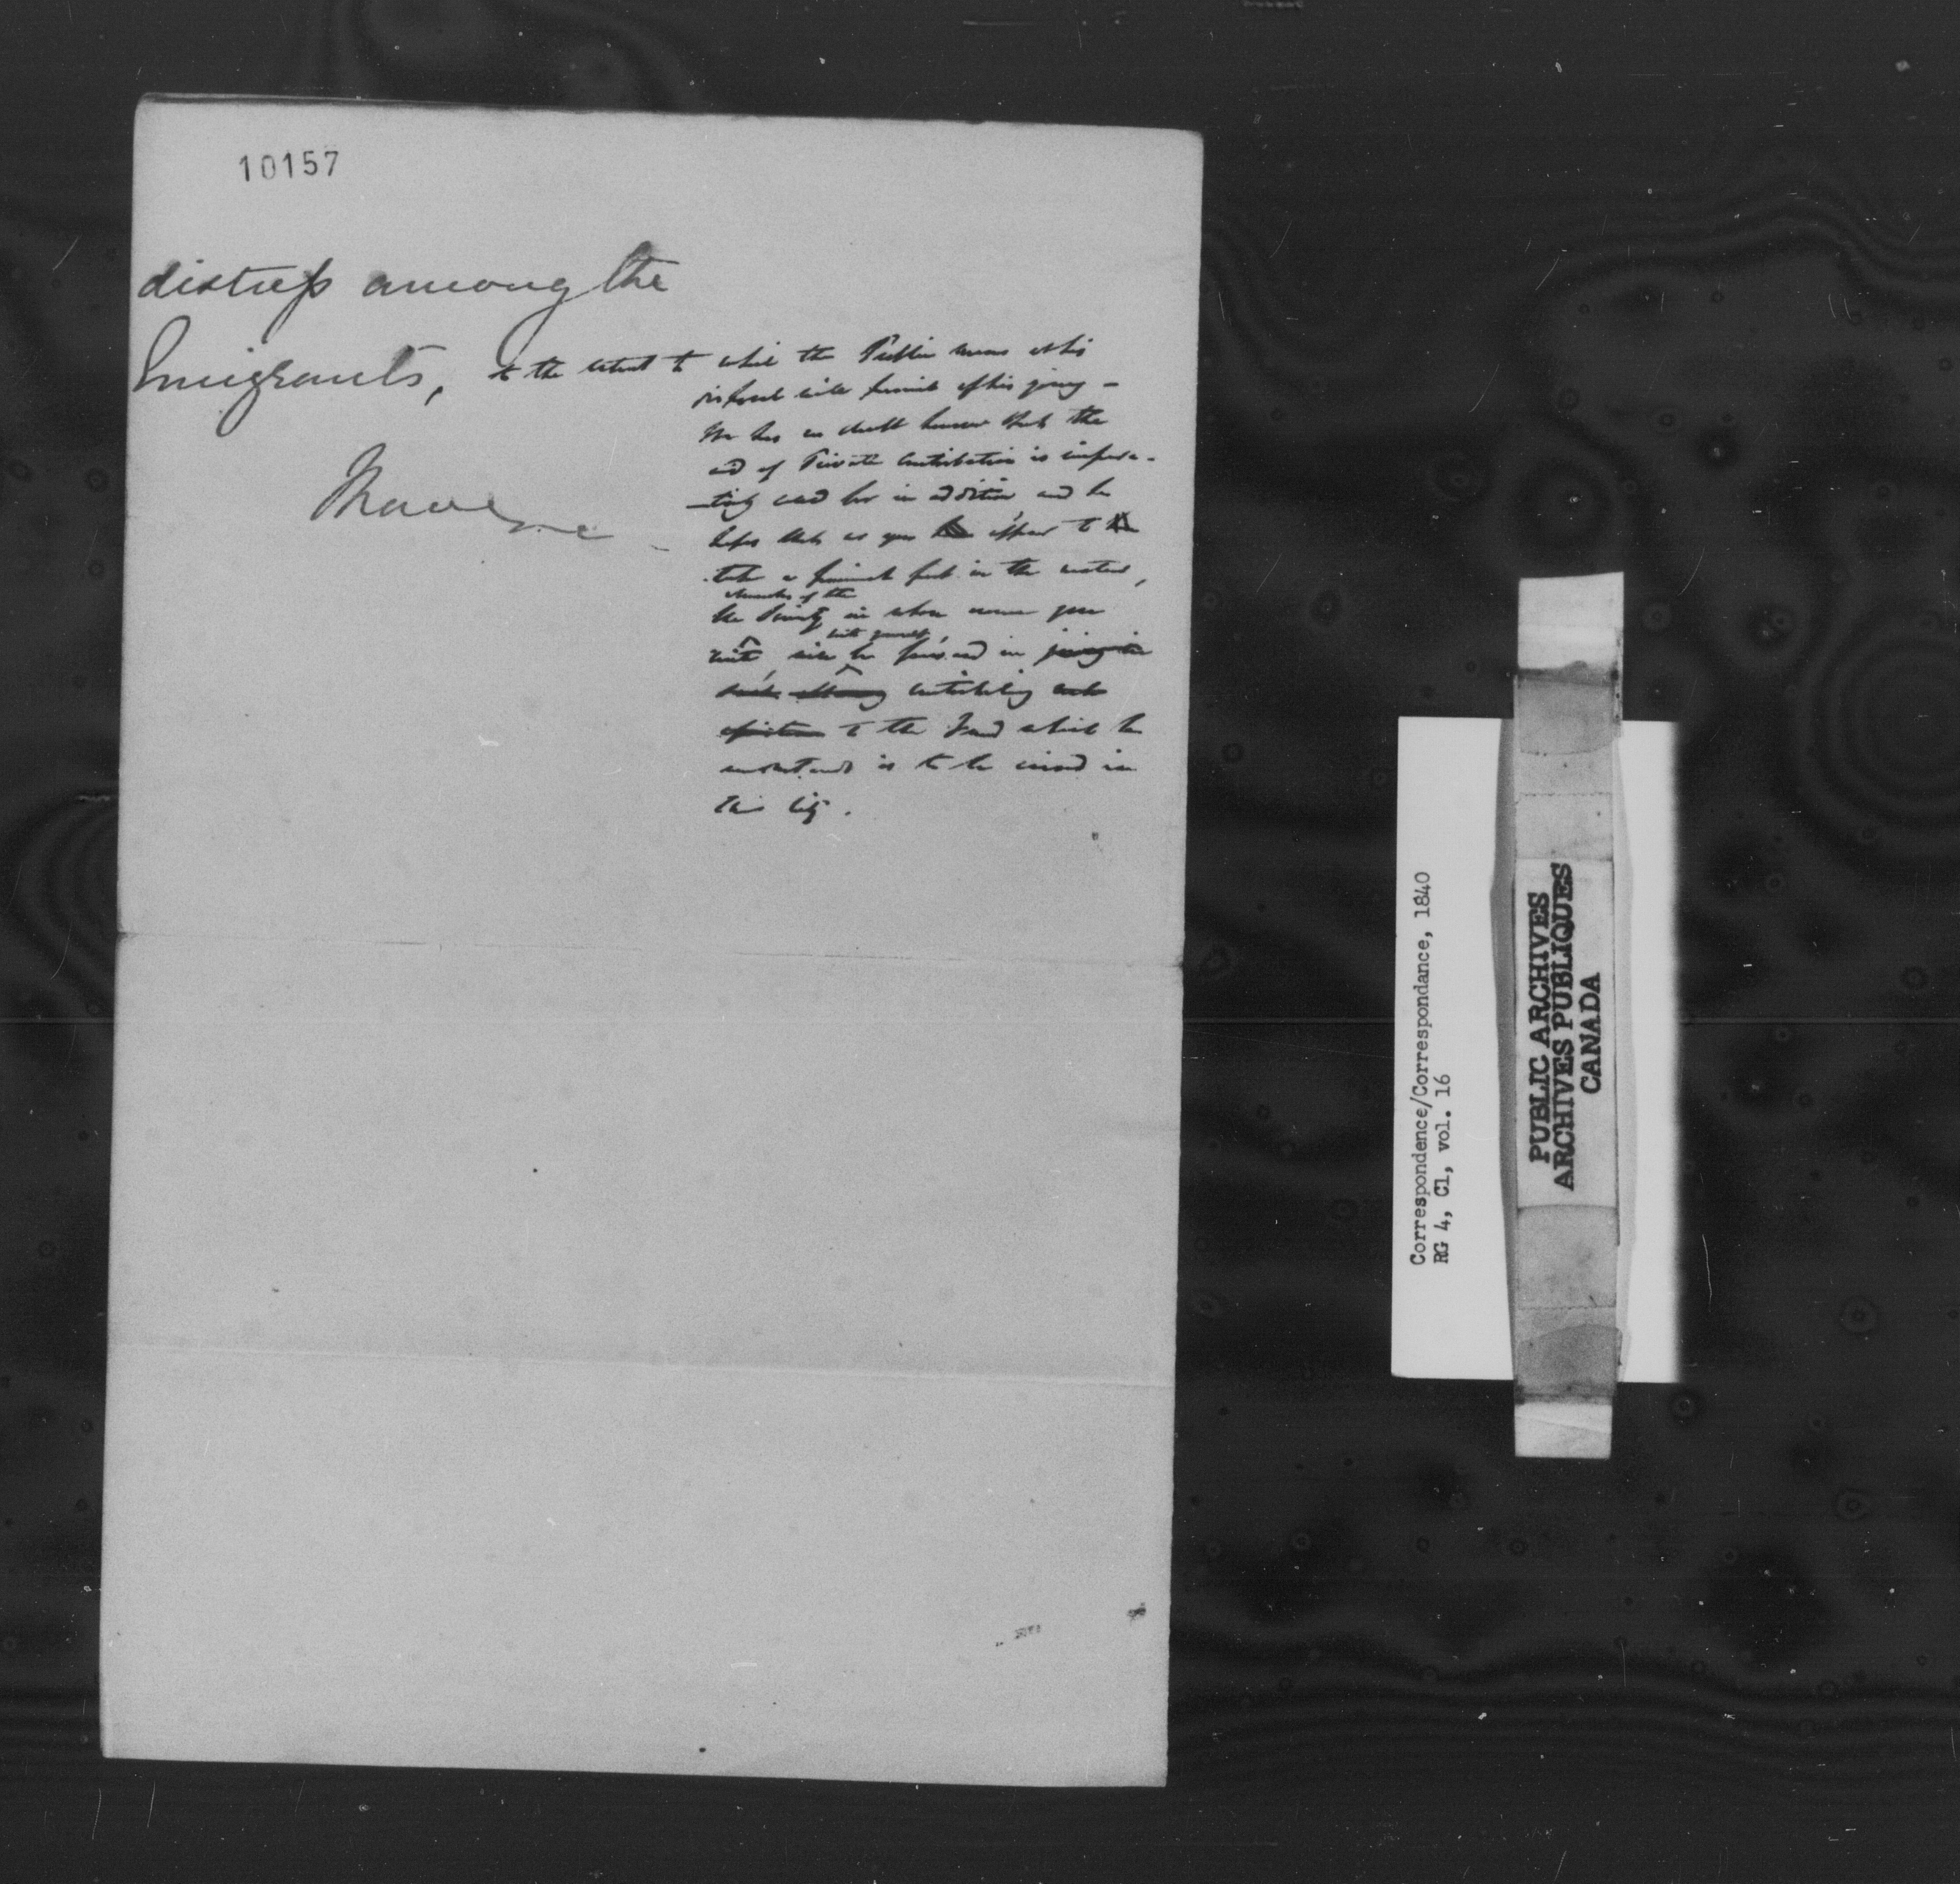 10157
distress among the
Emigrants, to the extent to which the Public means at his
disposal will permit of his giving –
He has no doubt however that the
aid of Private contribution is impera-
-tively called for in addition, and he
hopes that as you appear to
take a part in the matter,
members of the
the Society in whose name you
write will be found in
contributing
to the Fund which he
understands is to be raised in
this City.
I have &c
Correspondence/Correspondance, 1840
RG 4, C1, vol. 16
PUBLIC ARCHIVES
ARCHIVES PUBLIQUES
CANADA